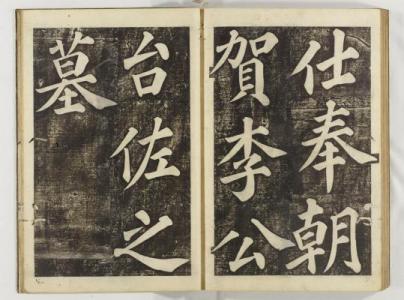 仕奉朝
賀李公
台佐之
墓